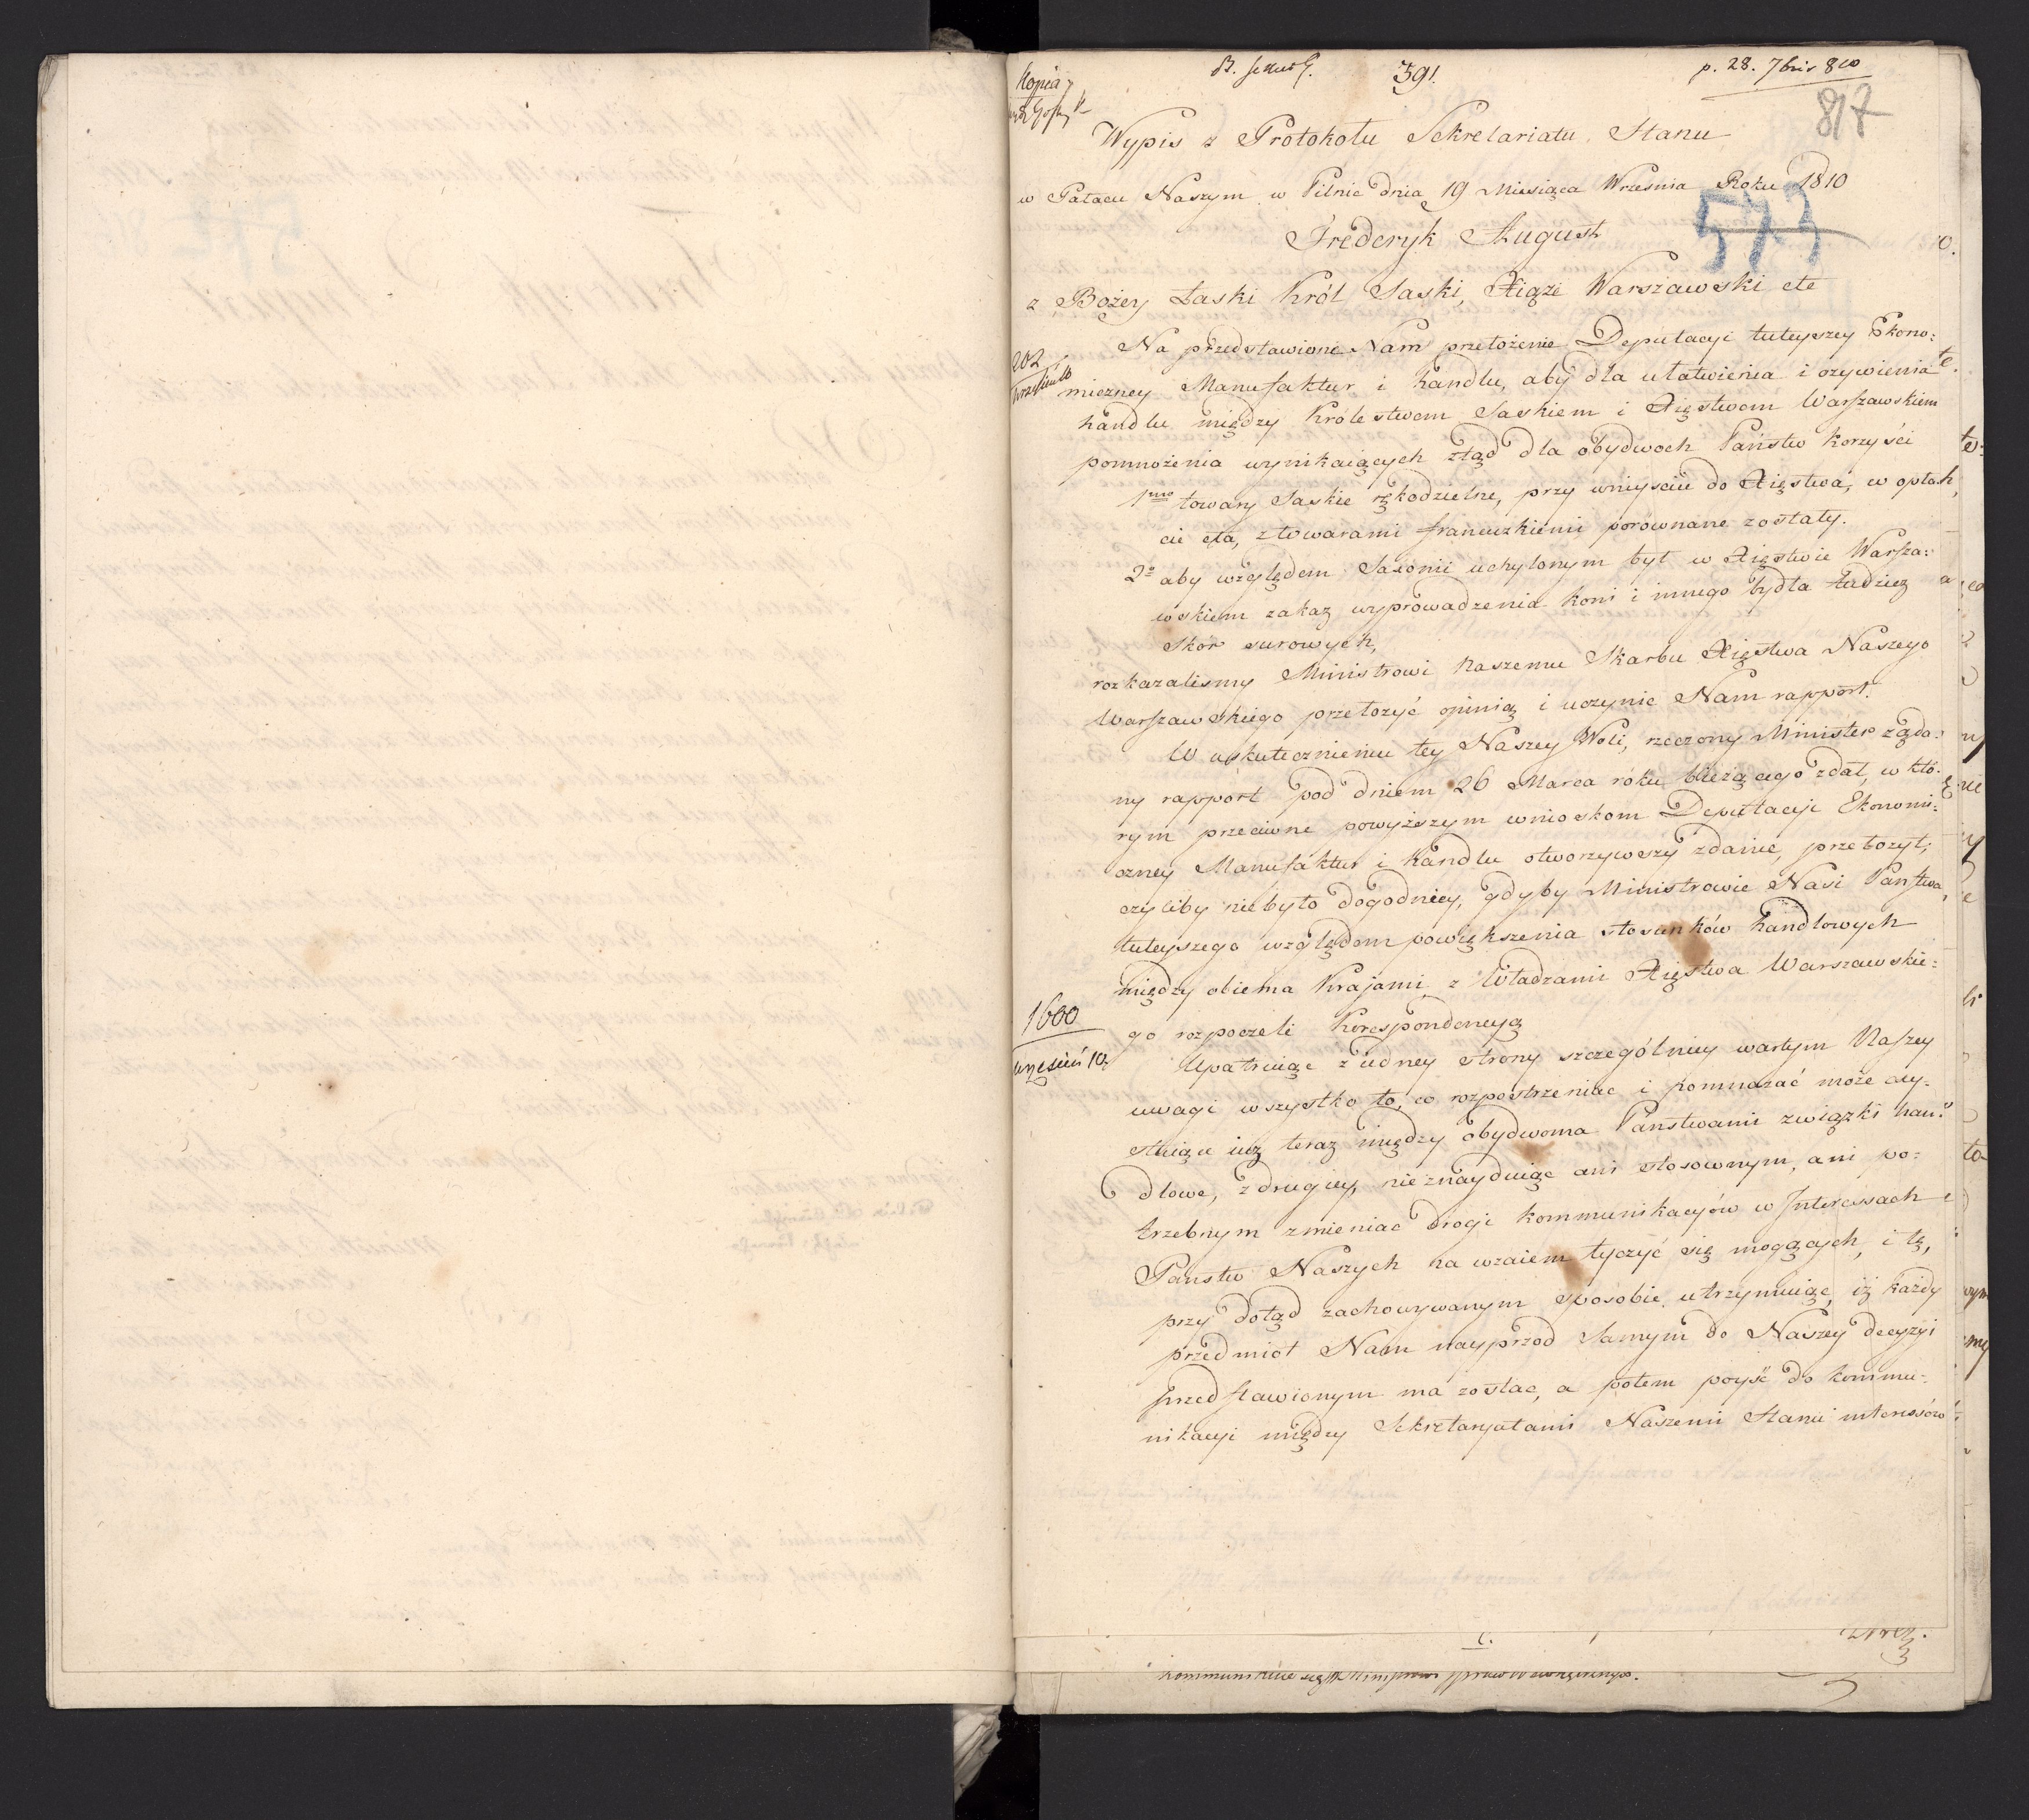 Kopia
391.
p. 28. 7bris 810
817
Wypis z Protokołu Sekretariatu Stanu
w Pałacu Naszym w Pilnie dnia 19 Miesiąca Września Roku 1810
573
Fréderyk August
z Bożey Łaski Król Saski, Xiąże Warszawski etc
Na przedstawione Nam przełożenie Deputacyi tuteyszey Ekono:
202
miczney Manufaktur i handlu, aby dla ułatwienia i ożywienia
handlu między Królestwem Saskiem i Xięstwem Warszawskiem
pomnożenia wynikaiących ztąd dla obydwoch Państw korzyści
1mo towary Saskie rękodzielne, przy wniyściu do Xięstwa, w opła-
cie cła, z towarami francuzkiemi porównane zostały.
2o aby względem Saxonii uchylonym był w Xięstwie Warsza:
wskiem zakaz wyprowadzenia koni i innego bydła tudzież
skór surowych,
rozkazalismy Ministrowi Naszemu Skarbu Xięstwa Naszego
Warszawskiego przełożyć opinią i uczynić Nam rapport.
W uskutecznieniu tey Naszey Woli, rzeczony Minister żąda:
ny rapport pod dniem 26 Marca roku bieżącego zdał, w któ-
rym przeciwne powyższym wnioskom Deputacyi Ekonomi:
czney Manufaktur i handlu otworzywszy zdanie, przełożył,
czyliby niebyło dogodniey, gdyby Ministrowie Nasi Państwa
tuteyszego względem powiększenia stosunków handlowych
między obiema Krajami z Władzami Xięstwa Warszawskie:
1600
go rozpoczeli Korespondencyą
wrzesień 10.
Upatruiąc z iedney strony szczególniey wartym Naszey
uwagi wszystko to, co rozpostrzeniać i pomnażać może exy-
stuiące iuż teraz między obydwoma Państwami związki han:
dlowe, z drugiey, nieznayduiąc ani stosownym, ani po:
trzebnym zmieniać drogi kommunikacyów w Interessach
Państw Naszych na wzaiem tyczyć się mogących, i tę,
przy dotąd zachowywanym sposobie utrzymuiąc, iż każdy
przedmiot Nam nayprzod Samym do Naszey decyzyi
przedstawionym ma zostać, a potem poyść do kommu-
nikacyi między Sekretaryatami Naszemi Stanu interessów